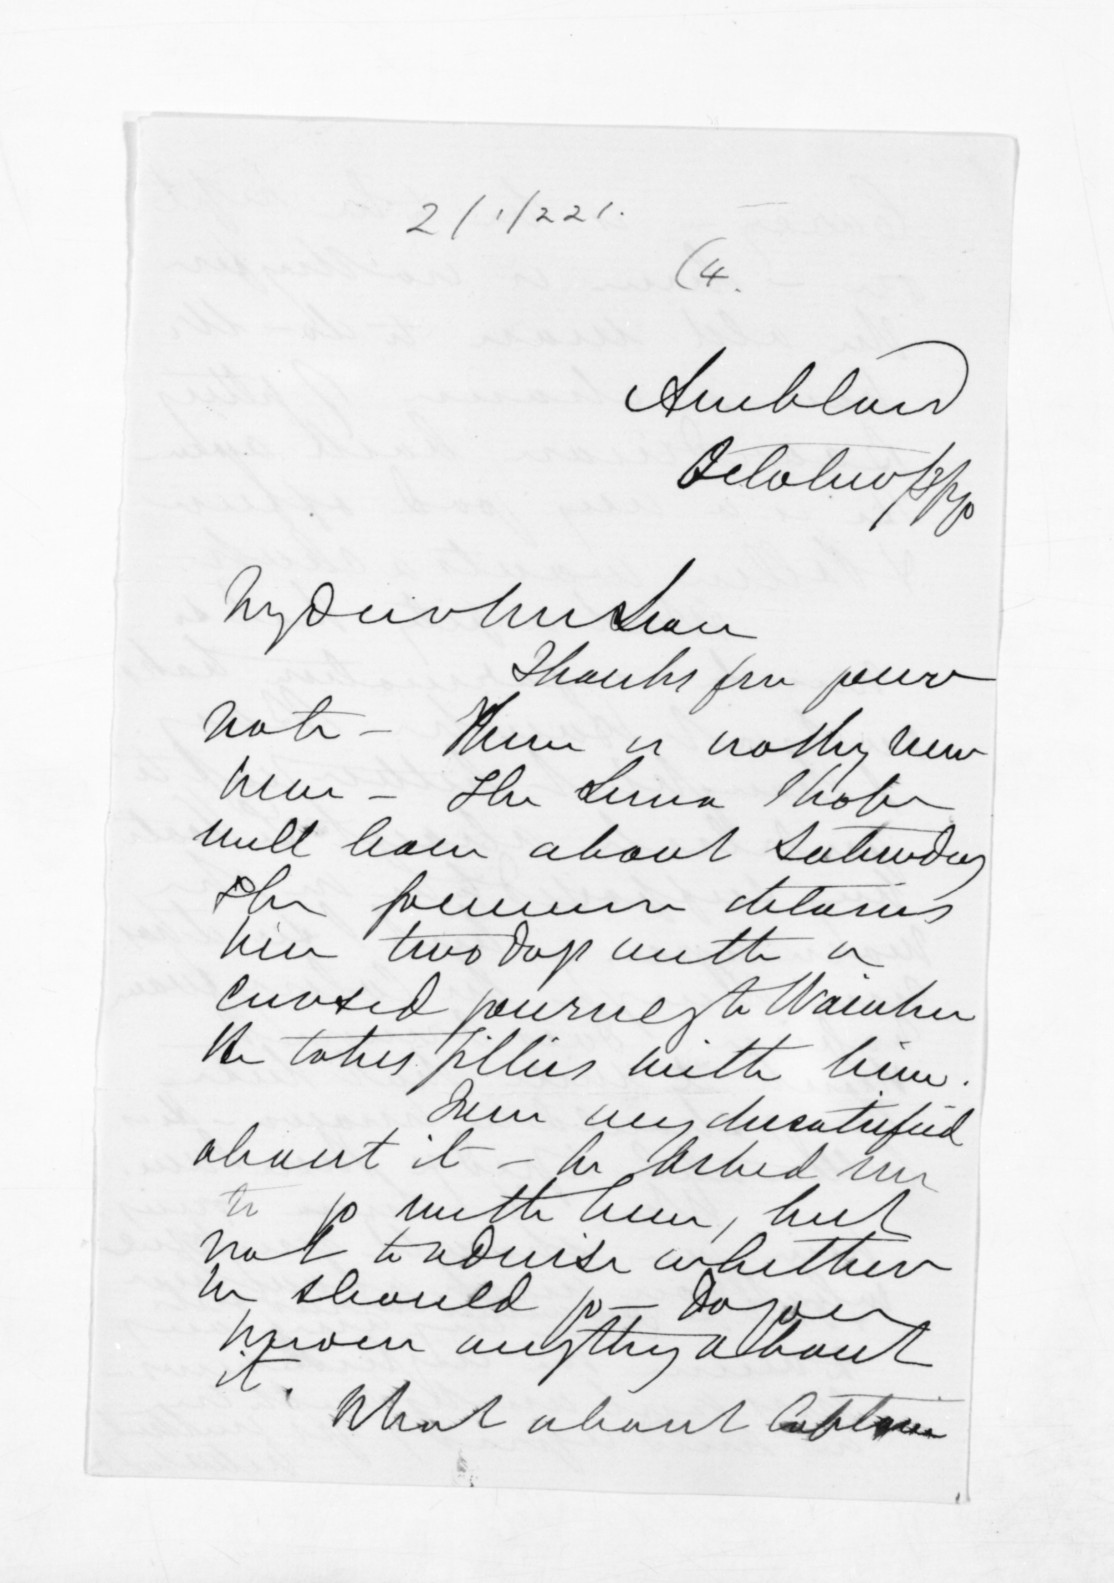 2/1/221.
(4.
Auckland
October
My Dear McLean
Thanks for your
note - There is nothg new
here - The Luna I hope
will leave about Saturday
The Governor detains
him two days with a
cursed journey to
He takes Gillies with him.
I am very dissatisfied
about it - he asked me
to go with him, but
not to advise whether
he should go - Do you
know anythg about
it.
What about Captain